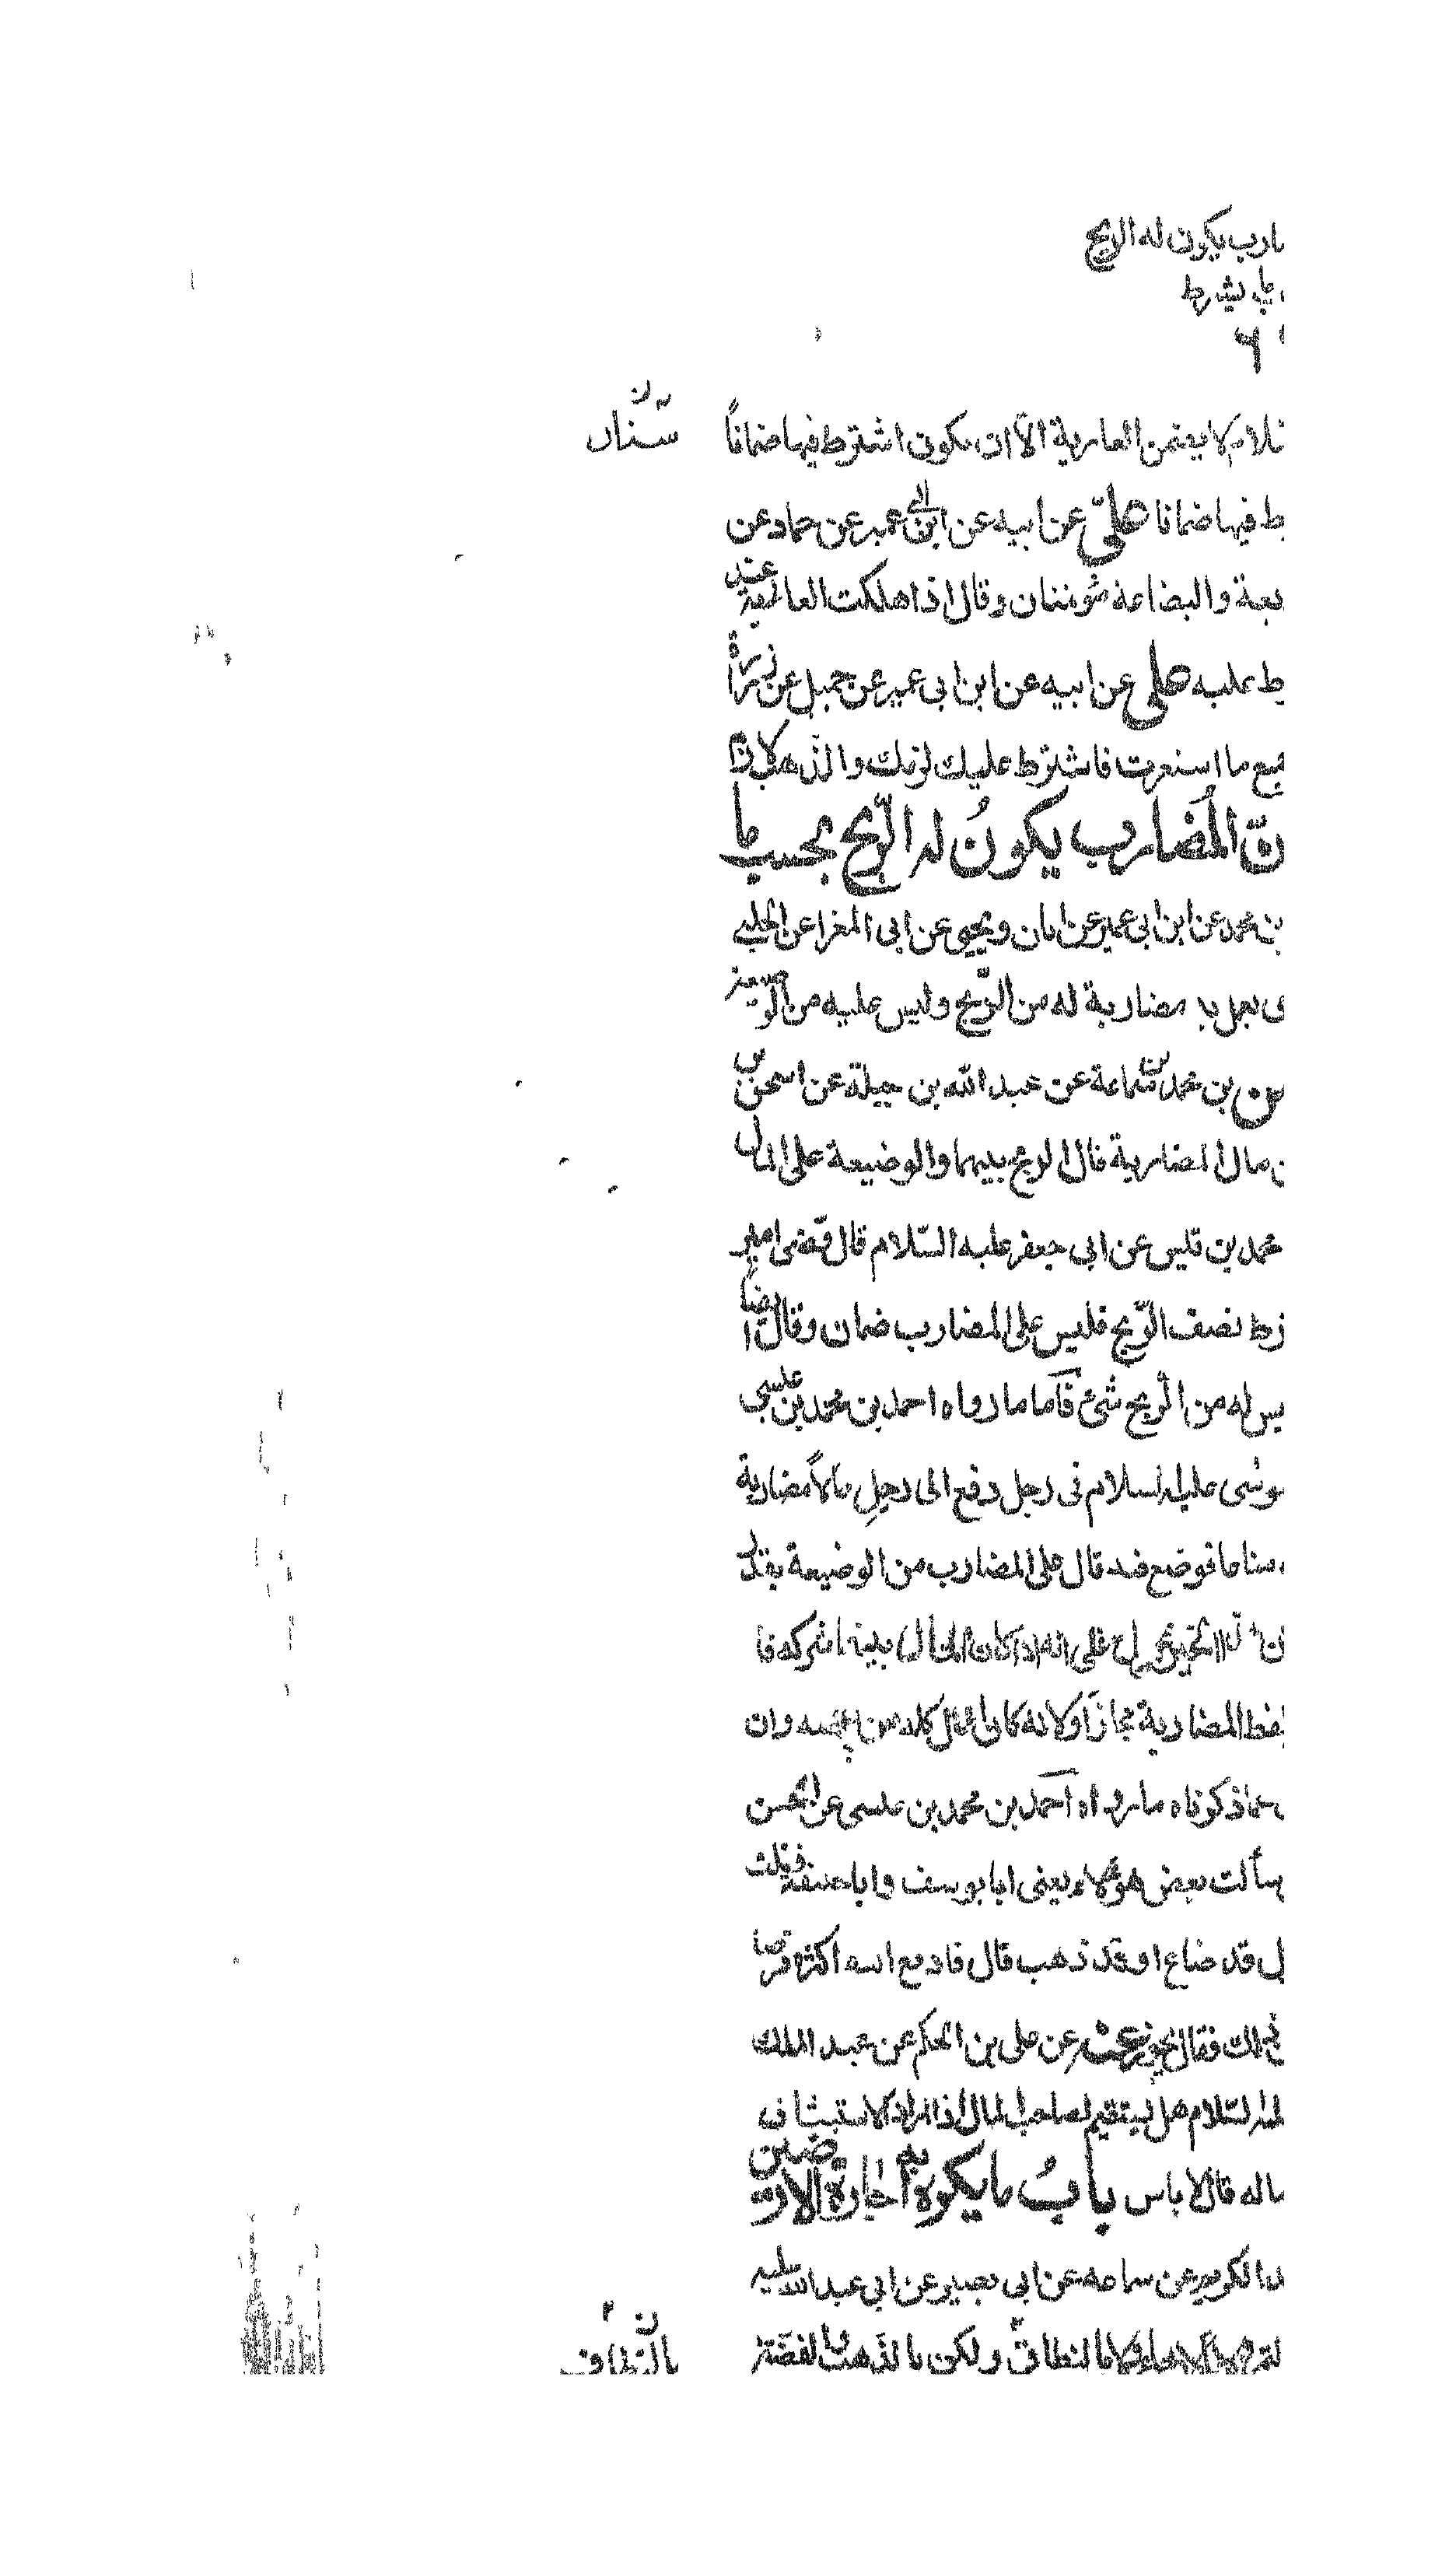 ارب يكون له الربح
ما يشرط
٦
لا يضمن العارية الا ان يكون اشترط فيها ضمانا
سنان
ط فيها ضمانا علي عن ابيه عن ابن ابي عمير عن حماد عن
يعة والبضاعة مؤتمنان وقال اذا هلكت العارية عند
ط عليه علي عن ابيه عن ابن ابي عمير عن جميل عن زرارة
ما استعرت فاشترط عليك لزمك والذهب لازم
انّ المُضارب يكونُ له الرّبح بحسب ما
بن محمد عن ابن ابي عمير عن ابان ويحيى عن ابي المغرا عن الحلبي
يعمل به مضاربة له من الرّبح وليس عليه من الوضيعة
بن محمد بن سماعة عن عبد الله بن جبلة عن اسحق بن
مال المضاربة قال الربح بينهما والوضيعة على المال
محمد بن قيس عن ابي جعفر عليه السّلام قال قضى امير
نصف الرّبح فليس على المضارب ضمان وقال ايضا
يس له من الرّبح شئ فاما ما رواه احمد بن محمد بن عيسى
موسى عليه السلام في رجل دفع الى رجل مالاً مضاربة
فوضع فيه قال على المضارب من الوضيعة بقدر
على انه اذا كان المال بينهما شركة فا
المضاربة مجازا ولانه كان المال كله من وان
ما ذكرناه ما رواه احمد بن محمد بن عيسى عن الحسن
سألت بعض هؤلاء يعني ابا يوسف وابا حنيفة فقلت
قد ضاع او قد ذهب قال فادفع اليه اكثره قرضا
ذلك فقال يجوز عنه عن علي بن الحكم عن عبد الملك
السّلام هل يستقيم لصاحب المال اذا اراد الاستيثاق
ماله قال لا باس بابُ ما يكره به اجارة الارضين
عبد الكريم عن سماعة عن ابي بصير عن ابي عبد الله عليه
بالنطاف ولكن بالذهب والفضة
بالنطاف